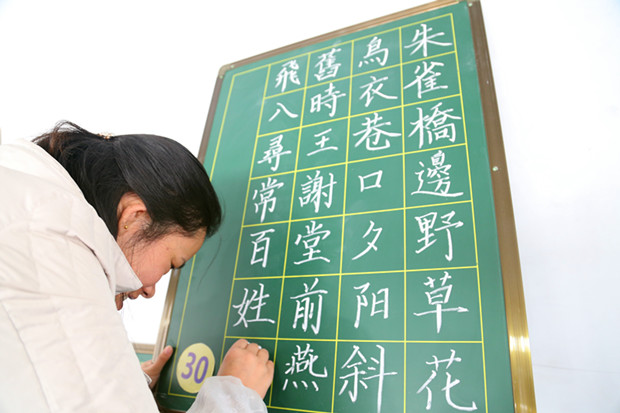 朱雀橋邊野草花
鳥衣巷口夕陽斜
舊時王謝堂前燕
飛八尋常百姓
30